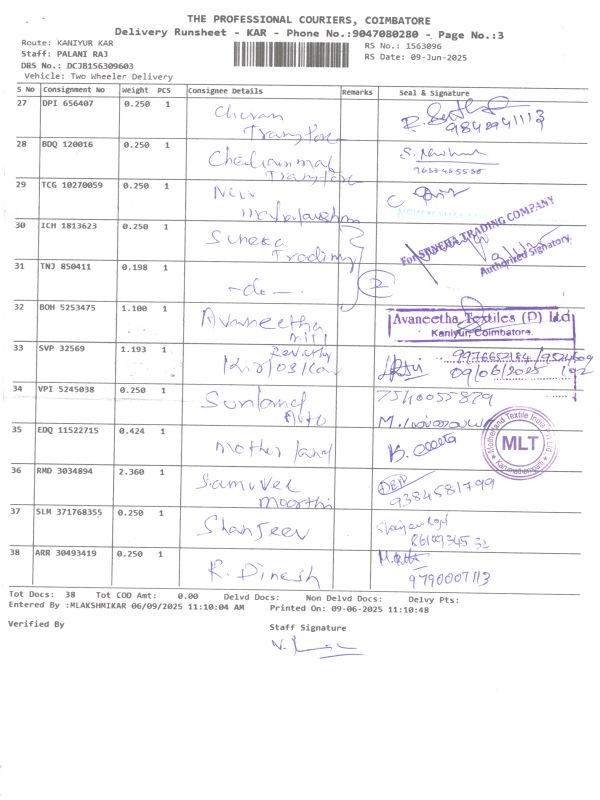 THE PROFESSIONAL COURIERS, COIMBATORE
Delivery Runsheet - KAR - Phone No.:9047080280 - Page No.:3
Route: KANIYUR KAR
RS No.: 1563096
Staff: PALANI RAJ
RS Date: 09-Jun-2025
DRS No.: DCJB156309603
Vehicle: Two Wheeler Delivery
S No Consignment No Weight PCS Consignee Details Remarks Seal & Signature
27 DPI 656407 0.250 1 Cheran
Transport 9842941113
28 BDQ 120016 0.250 1
Transport
29 TCG 10270059 0.250 1 New
30 ICH 1813623 0.250 1 Suneka
Trading
For SANEHA TRADING COMPANY
Authorized Signatory.
31 TNJ 850411 0.198 1 -do- 2
32 BOH 5253475 1.100 1 Avaneetha
mill
Avaneetha Textiles (P) Ltd
Kaniyur, Coimbatore.
33 SVP 32569 1.193 1 Revathy
Kirloskar
09/06/2025
34 VPI 5245038 0.250 1 Sunland
Auto
7540055879
35 EDQ 11522715 0.424 1 mother land
Motherland Textile India Pvt Ltd
MLT
Karumathampatti
36 RMD 3034894 2.360 1 Samuvel
moorthi
9384581799
37 SLM 371768355 0.250 1 Shanjeev
8610934532
38 ARR 30493419 0.250 1 R. Dinesh
9790007113
Tot Docs: 38 Tot COD Amt: 0.00 Delvd Docs: Non Delvd Docs: Delvy Pts:
Entered By :MLAKSHMIKAR 06/09/2025 11:10:04 AM Printed On: 09-06-2025 11:10:48
Verified By
Staff Signature